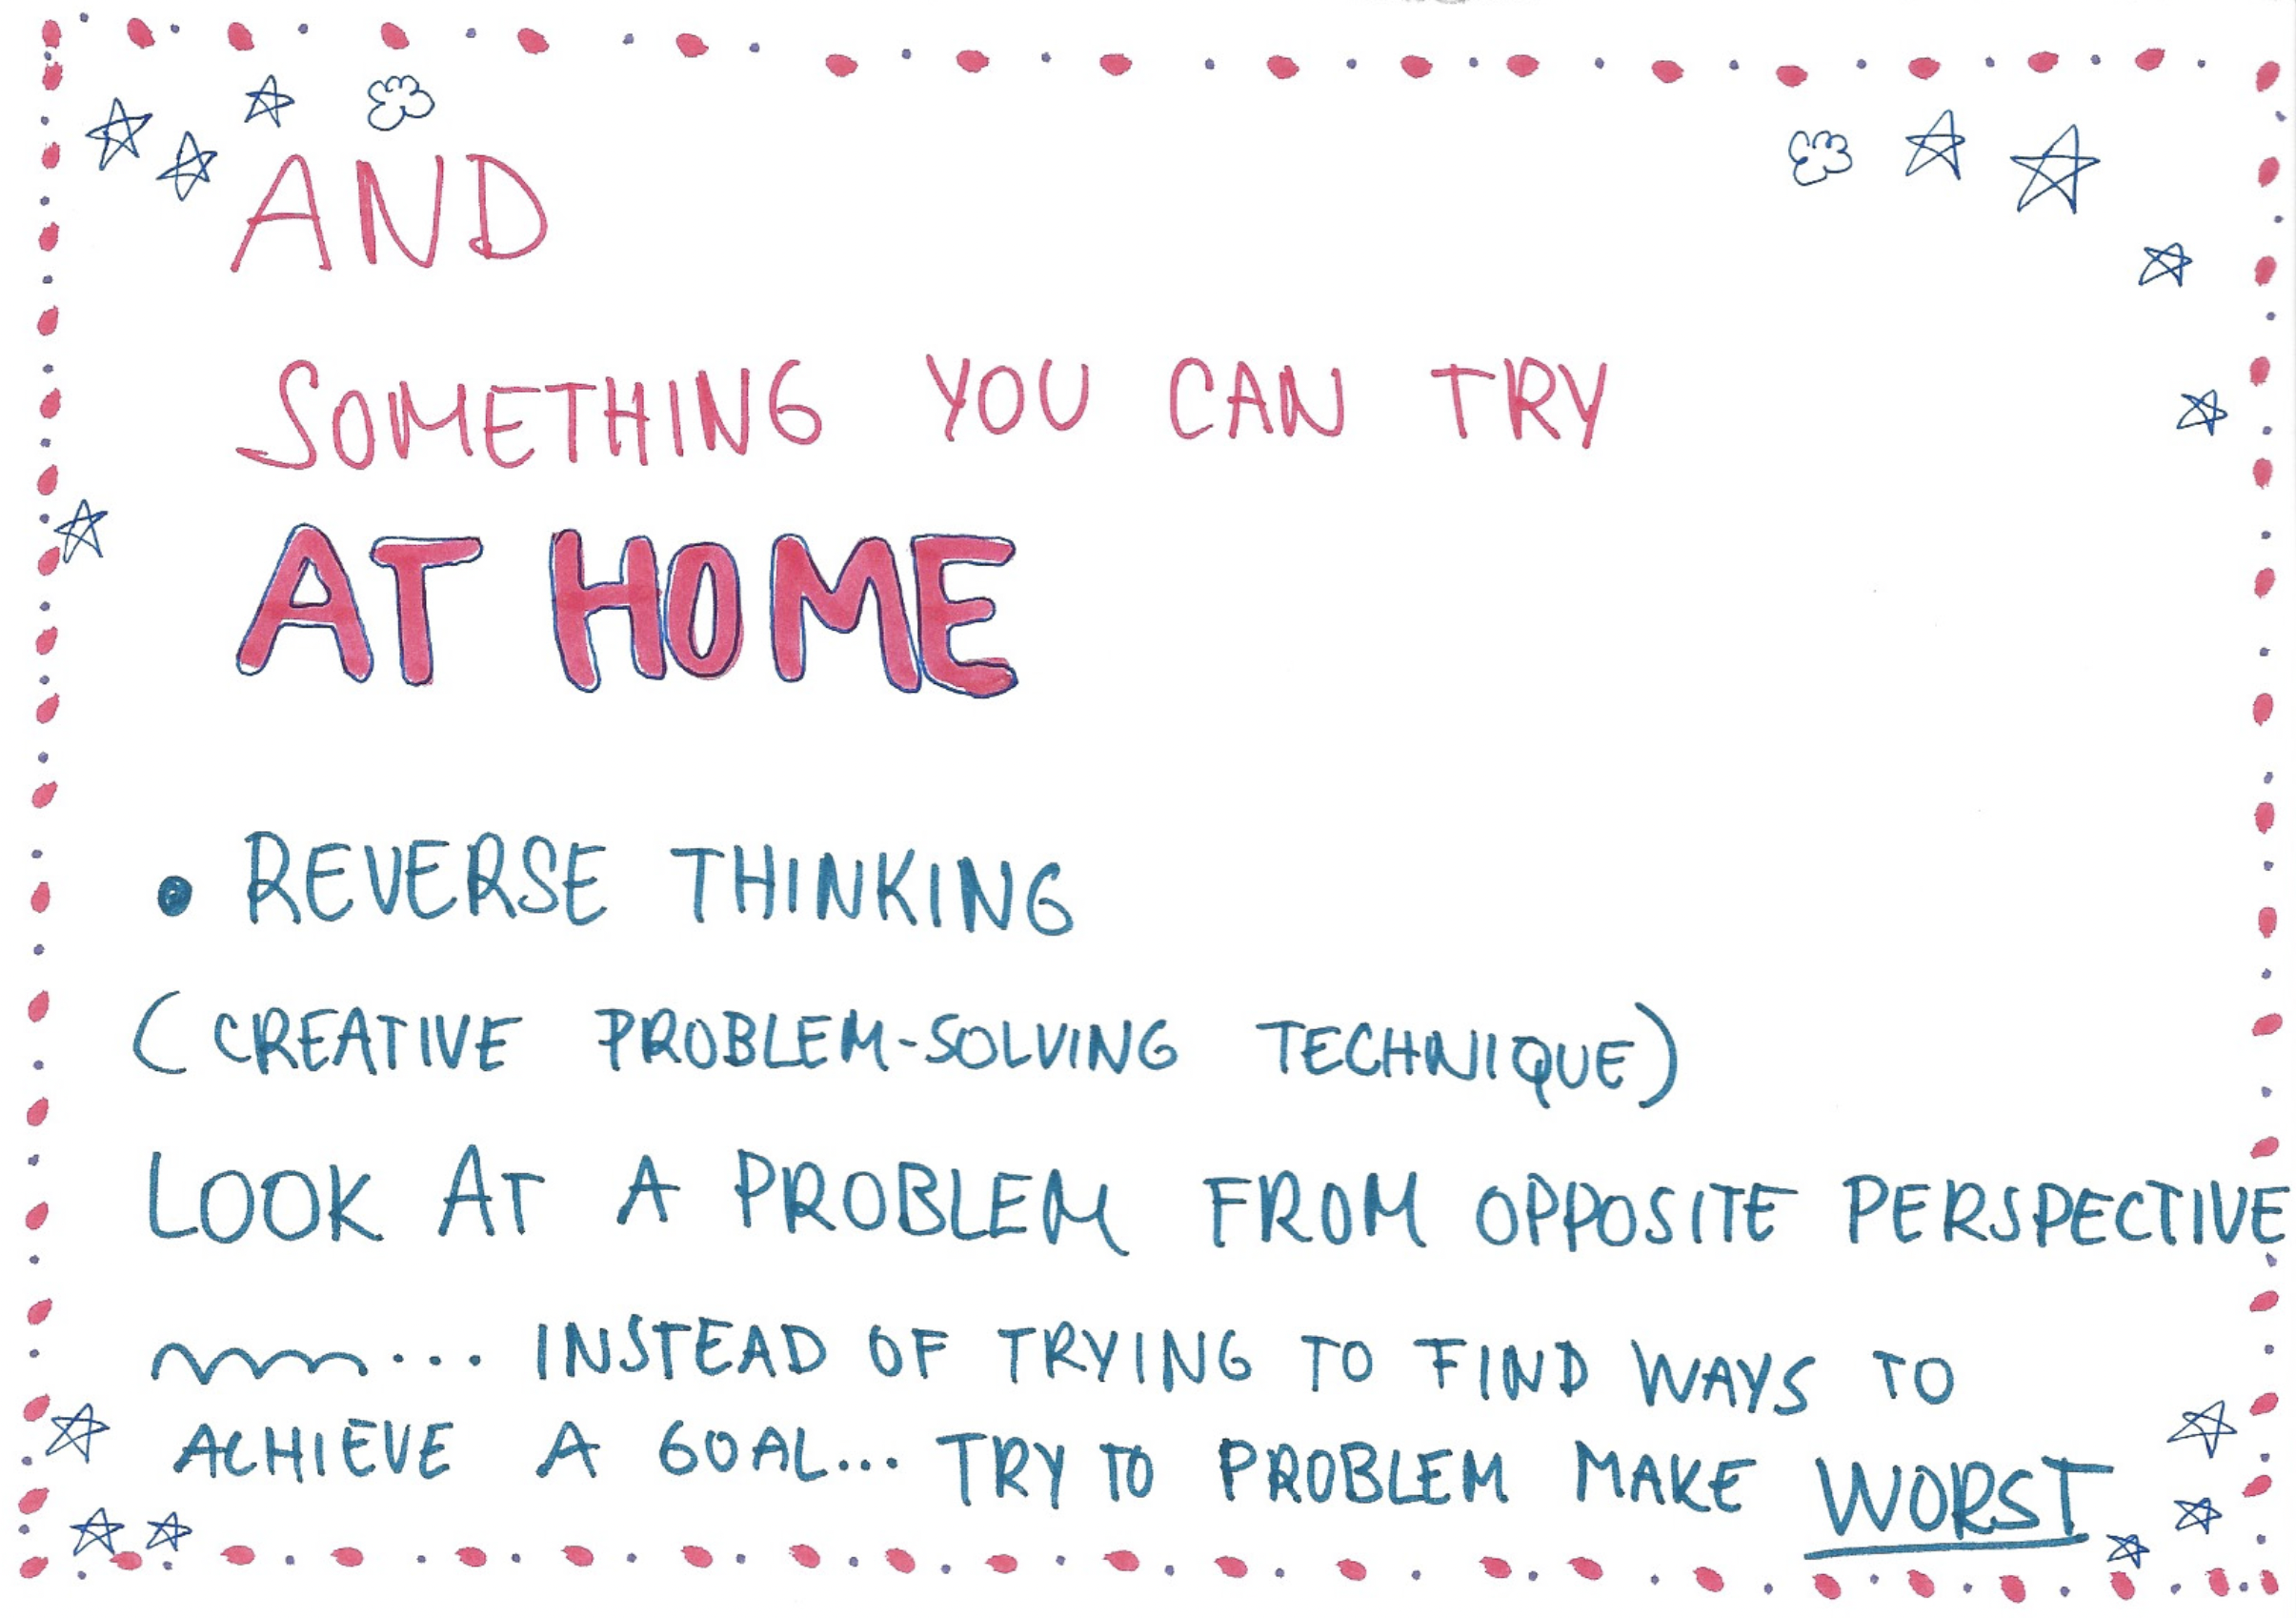 AND
SOMETHING YOU CAN TRY
AT HOME
• REVERSE THINKING
(CREATIVE PROBLEM-SOLVING TECHNIQUE)
LOOK AT A PROBLEM FROM OPPOSITE PERSPECTIVE
... INSTEAD OF TRYING TO FIND WAYS TO
ACHIEVE A GOAL... TRY TO PROBLEM MAKE WORST